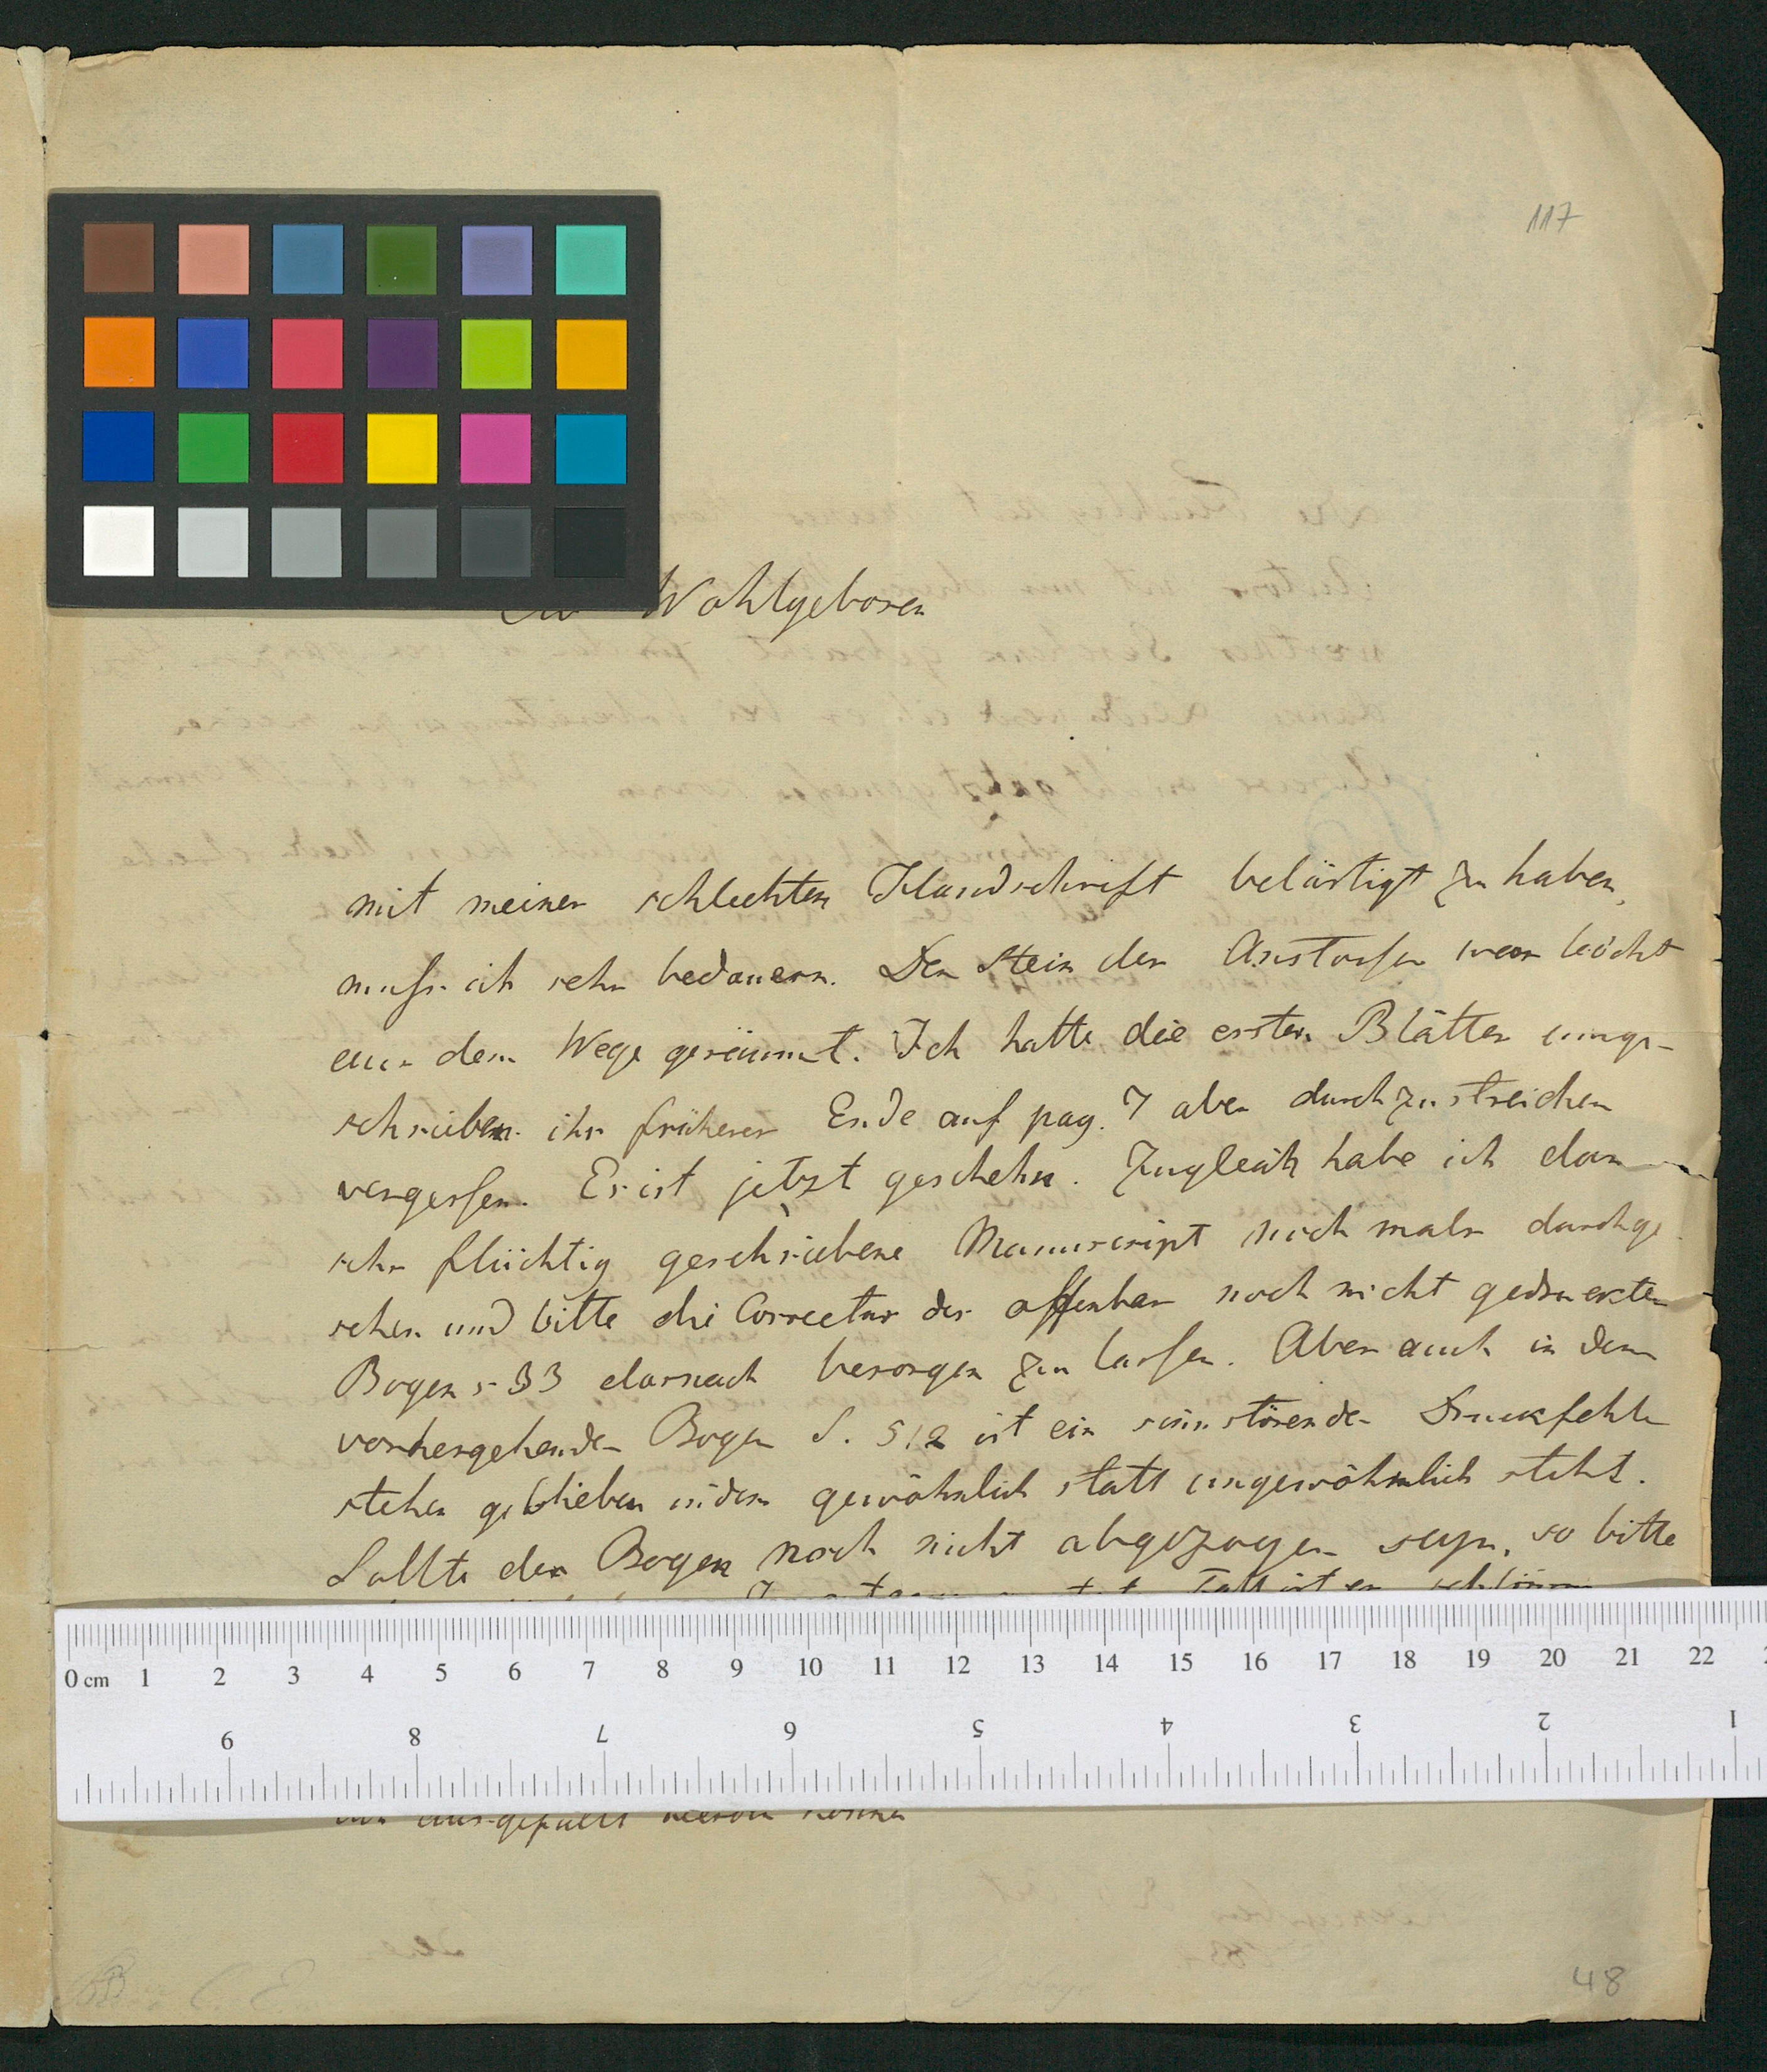 117
Wohlgeboren
mit meiner schlechten Handschrift belästigt zu haben,
muß ich sehr bedauern. Der Stein des Anstoßes war leicht
aus dem Wege geräumt. Ich hatte die ersten Blätter umge-
schrieben ihr früheres Ende auf pag. 7 aber durchzustreichen
vergessen. Es ist jetzt geschehn. Zugleich habe ich das
sehr flüchtig geschriebene Manuscript noch mals durchge
sehen und bitte die Correctur des offenbar noch nicht gedruckten
Bogens 33 darnach besorgen zu lassen. Aber auch in dem
vorhergehenden Bogen S. 512 ist ein sinnstörender Druckfehler
stehen geblieben indem gewöhnlich statt ungewöhnlich steht.
Sollte der Bogen noch nicht abgezogen seyn, so bitte
0 cm 1 2 3 4 5 6 7 8 9 10 11 12 13 14 15 16 17 18 19 20 21 22
9 8 7 6 5 4 3 2 1
ausgefüllt werden können
48